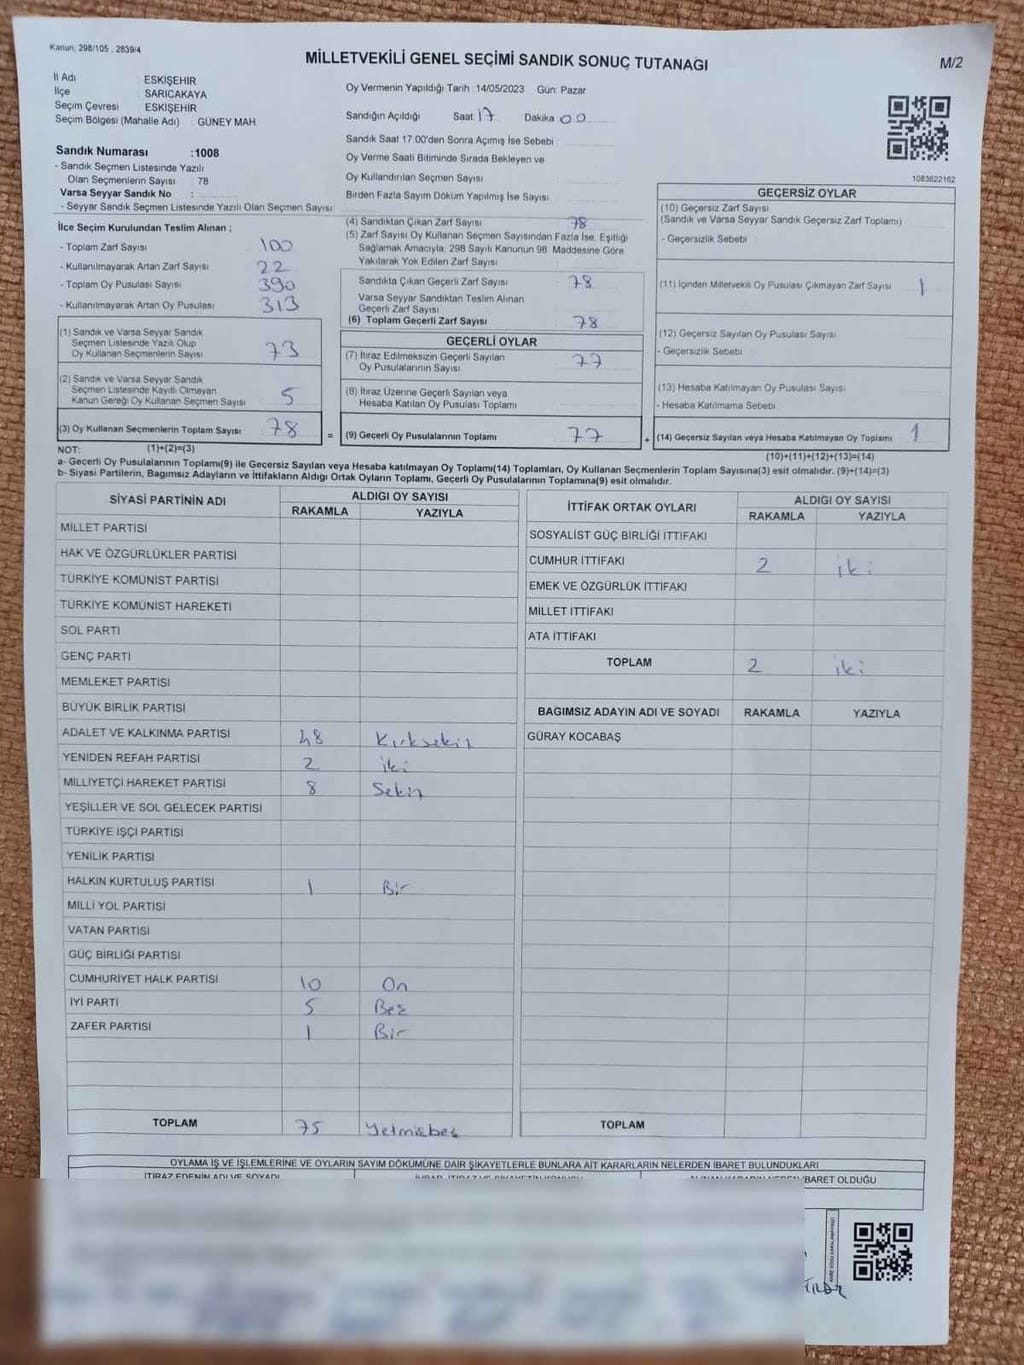 Kanun: 298/105 , 2839/4
MİLLETVEKİLİ GENEL SEÇİMİ SANDIK SONUÇ TUTANAĞI
M/2
İl Adı : ESKİŞEHİR
İlçe : SARICAKAYA
Seçim Çevresi : ESKİŞEHİR
Seçim Bölgesi (Mahalle Adı) : GÜNEY MAH
Oy Vermenin Yapıldığı Tarih : 14/05/2023 Gün: Pazar
Sandığın Açıldığı Saat: 17 Dakika 00
Sandık Saat 17:00'den Sonra Açılmış İse Sebebi :
Oy Verme Saati Bitiminde Sırada Bekleyen ve
Oy Kullandırılan Seçmen Sayısı :
Birden Fazla Sayım Döküm Yapılmış İse Sayısı :
Sandık Numarası :1008
- Sandık Seçmen Listesinde Yazılı
Olan Seçmenlerin Sayısı : 78
Varsa Seyyar Sandık No :
- Seyyar Sandık Seçmen Listesinde Yazılı Olan Seçmen Sayısı:
1083622162
İlçe Seçim Kurulundan Teslim Alınan ;
- Toplam Zarf Sayısı 100
- Kullanılmayarak Artan Zarf Sayısı 22
- Toplam Oy Pusulası Sayısı 390
- Kullanılmayarak Artan Oy Pusulası 313
(1) Sandık ve Varsa Seyyar Sandık
Seçmen Listesinde Yazılı Olup
Oy Kullanan Seçmenlerin Sayısı 73
(2) Sandık ve Varsa Seyyar Sandık
Seçmen Listesinde Kayıtlı Olmayan
Kanun Gereği Oy Kullanan Seçmen Sayısı 5
(3) Oy Kullanan Seçmenlerin Toplam Sayısı 78
(1)+(2)=(3)
(4) Sandıktan Çıkan Zarf Sayısı 78
(5) Zarf Sayısı Oy Kullanan Seçmen Sayısından Fazla İse, Eşitliği
Sağlamak Amacıyla; 298 Sayılı Kanunun 98. Maddesine Göre
Yakılarak Yok Edilen Zarf Sayısı
Sandıkta Çıkan Geçerli Zarf Sayısı 78
Varsa Seyyar Sandıktan Teslim Alınan
Geçerli Zarf Sayısı
(6) Toplam Geçerli Zarf Sayısı 78
GEÇERLİ OYLAR
(7) İtiraz Edilmeksizin Geçerli Sayılan
Oy Pusulalarının Sayısı 77
(8) İtiraz Üzerine Geçerli Sayılan veya
Hesaba Katılan Oy Pusulası Toplamı
= (9) Geçerli Oy Pusulalarının Toplamı 77
GEÇERSİZ OYLAR
(10) Geçersiz Zarf Sayısı
(Sandık ve Varsa Seyyar Sandık Geçersiz Zarf Toplamı)
- Geçersizlik Sebebi
(11) İçinden Milletvekili Oy Pusulası Çıkmayan Zarf Sayısı 1
(12) Geçersiz Sayılan Oy Pusulası Sayısı
- Geçersizlik Sebebi
(13) Hesaba Katılmayan Oy Pusulası Sayısı
- Hesaba Katılmama Sebebi
+ (14) Geçersiz Sayılan veya Hesaba Katılmayan Oy Toplamı 1
(10)+(11)+(12)+(13)=(14)
NOT:
a- Geçerli Oy Pusulalarının Toplamı(9) ile Geçersiz Sayılan veya Hesaba katılmayan Oy Toplamı(14) Toplamları, Oy Kullanan Seçmenlerin Toplam Sayısına(3) eşit olmalıdır. (9)+(14)=(3)
b- Siyasi Partilerin, Bağımsız Adayların ve İttifakların Aldığı Ortak Oyların Toplamı, Geçerli Oy Pusulalarının Toplamına(9) esit olmalıdır.
SİYASİ PARTİNİN ADI ALDIĞI OY SAYISI
RAKAMLA YAZIYLA
MİLLET PARTİSİ
HAK VE ÖZGÜRLÜKLER PARTİSİ
TÜRKİYE KOMÜNİST PARTİSİ
TÜRKİYE KOMÜNİST HAREKETİ
SOL PARTİ
GENÇ PARTİ
MEMLEKET PARTİSİ
BÜYÜK BİRLİK PARTİSİ
ADALET VE KALKINMA PARTİSİ 48 Kırksekiz
YENİDEN REFAH PARTİSİ 2 iki
MİLLİYETÇİ HAREKET PARTİSİ 8 Sekiz
YEŞİLLER VE SOL GELECEK PARTİSİ
TÜRKİYE İŞÇİ PARTİSİ
YENİLİK PARTİSİ
HALKIN KURTULUŞ PARTİSİ 1 Bir
MİLLİ YOL PARTİSİ
VATAN PARTİSİ
GÜÇ BİRLİĞİ PARTİSİ
CUMHURİYET HALK PARTİSİ 10 On
İYİ PARTİ 5 Beş
ZAFER PARTİSİ 1 Bir
TOPLAM 75 Yetmişbeş
İTTİFAK ORTAK OYLARI ALDIĞI OY SAYISI
RAKAMLA YAZIYLA
SOSYALİST GÜÇ BİRLİĞİ İTTİFAKI
CUMHUR İTTİFAKI 2 iki
EMEK VE ÖZGÜRLÜK İTTİFAKI
MİLLET İTTİFAKI
ATA İTTİFAKI
TOPLAM 2 iki
BAĞIMSIZ ADAYIN ADI VE SOYADI RAKAMLA YAZIYLA
GÜRAY KOCABAŞ
TOPLAM
OYLAMA İŞ VE İŞLEMLERİNE VE OYLARIN SAYIM DÖKÜMÜNE DAİR ŞİKAYETLERLE BUNLARA AİT KARARLARIN NELERDEN İBARET BULUNDUKLARI
İTİRAZ EDENİN ADI VE SOYADI
İBARET OLDUĞU